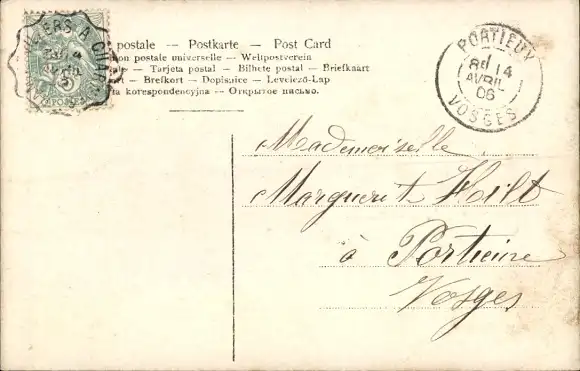 postale — Postkarte — Post Card
postale universelle — Weltpostverein
— Tarjeta postal — Bilhete postal — Briefkaart
— Brefkort — Dopisnice — Levelező-Lap
korespondencyjna — Открытое письмо.
PORTIEUX
14
AVRIL
06
VOSGES
Mademoiselle
à Portieux
Vosges